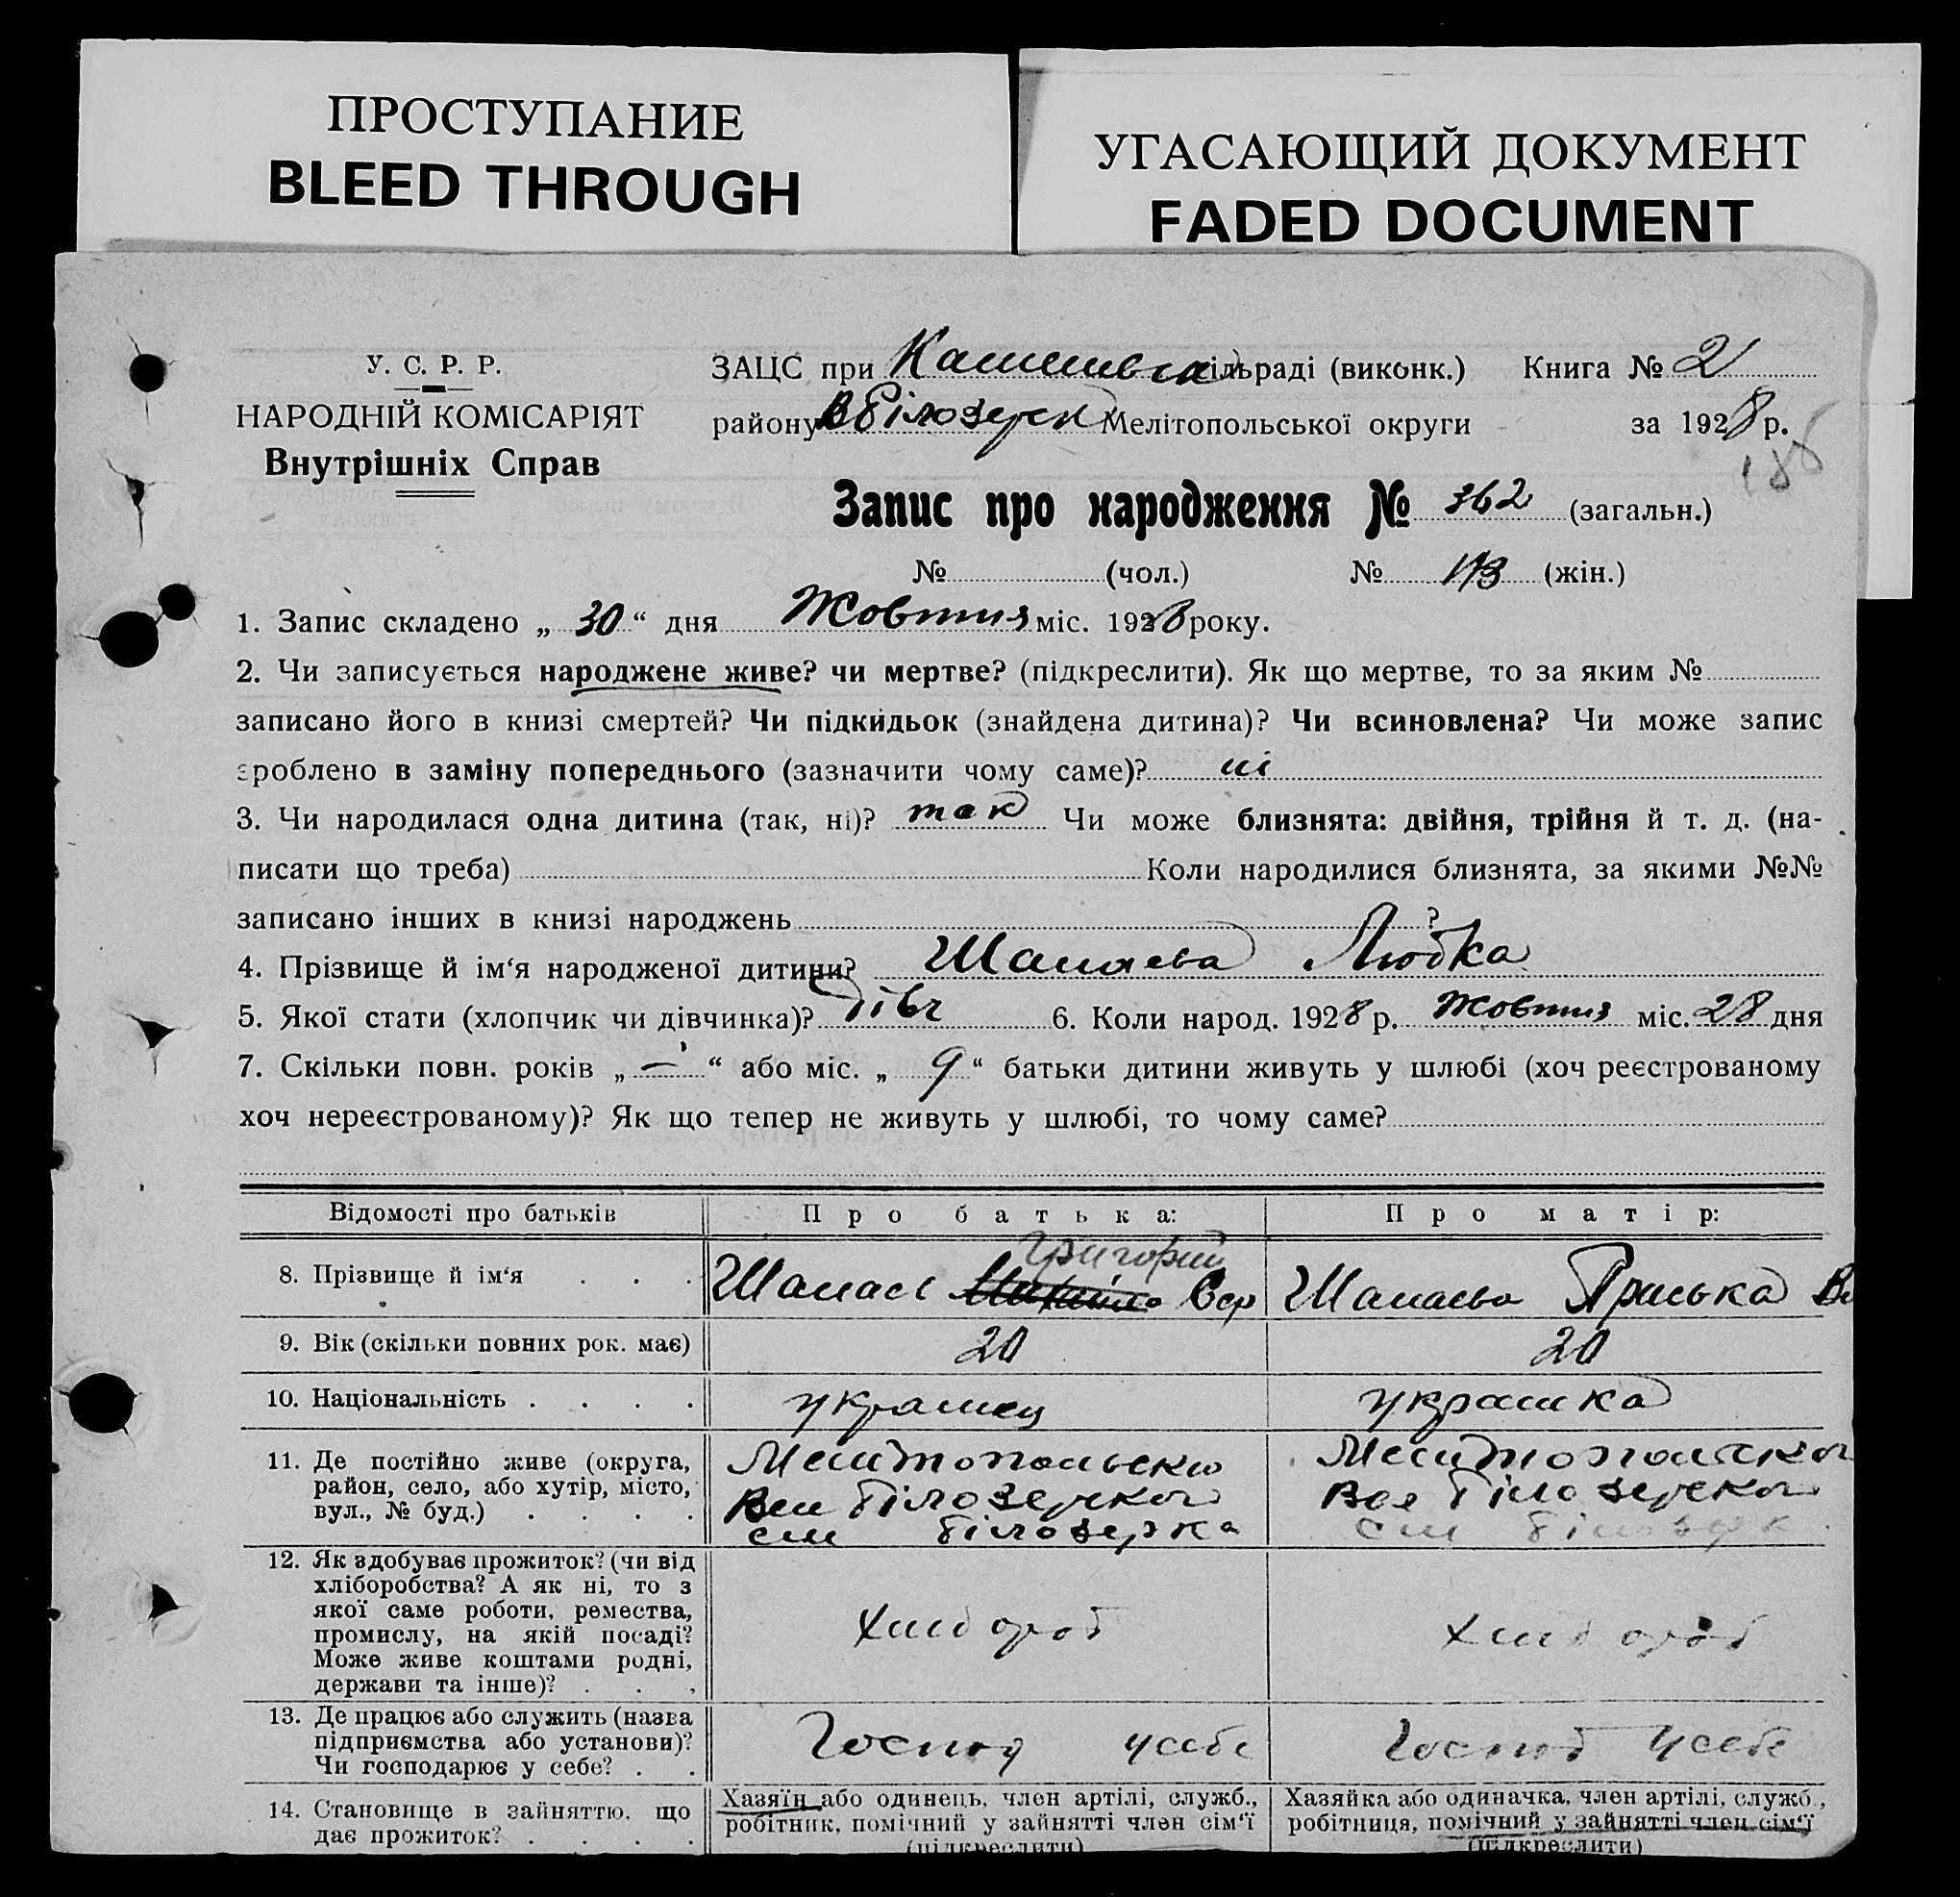 ПРОСТУПАНИЕ
BLEED THROUGH
УГАСАЮЩИЙ ДОКУМЕНТ
FADED DOCUMENT
У. С. Р. Р.
НАРОДНІЙ КОМІСАРІЯТ
Внутрішніх Справ
ЗАЦС при сільраді (виконк.) Книга № 2
району В Білозерк Мелітопольської округи за 1928 р.
186
Запис про народження № 362 (загальн.)
№ (чол.) № 173 (жін.)
1. Запис складено „ 30 “ дня Жовтня міс. 1928 року.
2. Чи записується народжене живе? чи мертве? (підкреслити). Як що мертве, то за яким №
записано його в книзі смертей? Чи підкидьок (знайдена дитина)? Чи всиновлена? Чи може запис
зроблено в заміну попереднього (зазначити чому саме)? ні
3. Чи народилася одна дитина (так, ні)? так Чи може близнята: двійня, трійня й т. д. (на-
писати що треба) Коли народилися близнята, за якими №№
записано інших в книзі народжень ?
4. Прізвище й ім‘я народженої дитини? Шанаєва Любка
5. Якої стати (хлопчик чи дівчинка)? дівч 6. Коли народ. 1928 р. Жовтня міс. 28 дня
7. Скільки повн. років „ — “ або міс. „ 9 “ батьки дитини живуть у шлюбі (хоч реєстрованому
хоч нереєстрованому)? Як що тепер не живуть у шлюбі, то чому саме?
Відомості про батьків Про батька: Про матір:
Григорий
8. Прізвище й ім‘я . . . Шанаєв Шанаєва Приська
9. Вік (скільки повних рок. має) 20 20
10. Національність . . . . українец українка
11. Де постійно живе (округа, Мелітопольской Мелітопольской
район, село, або хутір, місто, Вел Білозерской Вел Білозерской
вул., № буд.) . . . . сел Білозерка сел Білозерк
12. Як здобуває прожиток? (чи від
хліборобства? А як ні, то з
якої саме роботи, ремества, хлібороб хлібороб
промислу, на якій посаді?
Може живе коштами родні,
держави та інше)? . . .
13. Де працює або служить (назва
підприємства або установи)? Господ усебе Господ усебе
Чи господарює у себе? . .
14. Становище в зайняттю, що Хазяїн або одинець, член артілі, служб., Хазяйка або одиначка, член артілі, служб.,
дає прожиток? . . . . робітник, помічний у зайнятті член сім‘ї робітниця, помічний у зайнятті член сім‘ї
(підкреслити) (підкреслити)